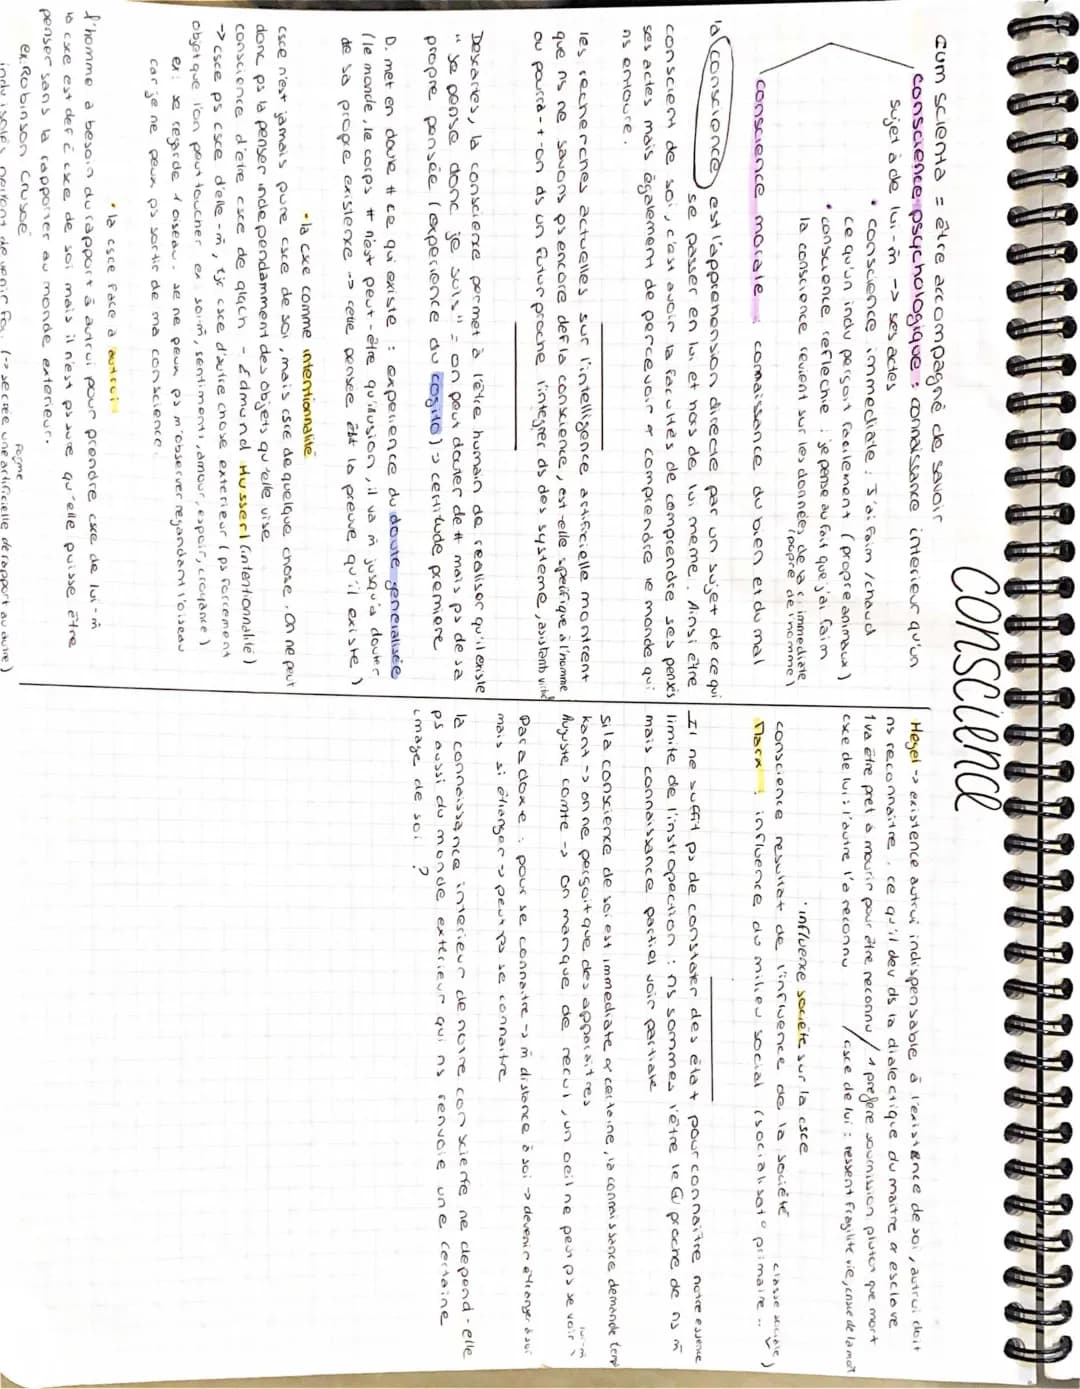 Conscience
Cum scienta = être accompagné de savoir
conscience psychologique : connaissance interieur qu'un
sujet à de lui-m̂ -> ses actes
• conscience immediate : J'ai faim / chaud
ce qu'un indvu perçoit facilement (propre animaux)
• conscience reflechie : je pense au fait que j'ai faim
la conscience revient sur les données de la c. immediate
(propre de l'homme)
conscience morale : connaissance du bien et du mal
la conscience est l'apprehension directe par un sujet de ce qui
se passer en lui et hors de lui meme. Ainsi être
conscient de soi, c'est avoir la facultés de comprendre ses pensés
ses actes mais également de percevoir et comprendre le monde qui
ns entoure.
les recherches actuelles sur l'intelligence artificielle montrent
que ns ne savons ps encore def la conscience, est-elle specifique à l'homme
ou pourra-t-on ds un futur proche l'integrer ds des systeme,
Descartes, la conscience permet à l'être humain de realiser qu'il existe
"Je pense donc je suis" = on peut douter de # mais ps de sa
propre pensée (experience du cogito) -> certitude premiere
D. met en doute # ce qui existe : experience du doute généralisée
(le monde, le corps # n'est peut-être qu'illusion, il va m̂ jusqu'à douter
de sa propre existence -> cette pensée est la preuve qu'il existe)
• la csce comme intentionnalité
csce n'est jamais pure csce de soi, mais csce de quelque chose. On ne peut
donc ps la penser independamment des objets qu'elle vise
conscience d'etre csce de qlqch - Edmund Husserl (intentionnalié)
-> csce ps csce d'elle-m̂, tjr csce d'autre chose exterieur (ps forcement
objet que l'on peut toucher ex: soi m̂, sentiments, amour, espoir, croyance)
ex: Je regarde 1 oiseau. Je ne peux ps m'observer regardant l'oiseau
car je ne peux ps sortir de ma conscience.
• la csce face à autrui
l'homme a besoin du rapport à autrui pour prendre csce de lui-m̂
la csce est def ê csce de soi mais il n'est ps sure qu'elle puisse être
penser sans la rapporter au monde exterieur.
ex: Robinson Crusoé
forme
indvu isolés peuvent devenir fou (-> se crée une artificielle de rapport au autre)
Hegel -> existence autrui indispensable à l'existence de soi, autrui doit
ns reconnaitre. ce qu'il dev ds la dialectique du maitre et esclave
1 va être pret à mourir pour être reconnu / 1 prefere soumission plutot que mort
csce de lui : l'autre l'a reconnu / csce de lui : ressent fragilité vie,
• influence société sur la csce
conscience resultat de l'influence de la société
classe sociale
Marx : influence du milieu social (socialisat° primaire..)
Il ne suffit ps de constater des état pour connaitre notre essence
limite de l'instropection : ns sommes l'être le proche de ns m̂
mais connaissance partiel voir partiale
Si la conscience de soi est immediate et certaine, la connaissance demande temp
Kant -> on ne perçoit que des apparaitres
Auguste Comte -> on manque de recul, un oeil ne peut ps se voir lui-m̂
Paradoxe : pour se connaitre -> m̂ distance à soi -> devenir étranger à soi
mais si étranger -> peut ps se connaitre
la connaissance interieur de notre conscience ne depend-elle
ps aussi du monde exterieur qui ns renvoie une certaine
image de soi ?